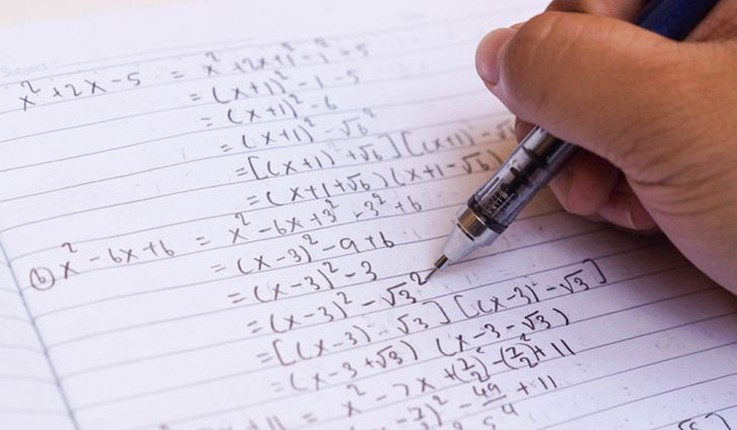 Subject
x² + 2x - 5 = x² + 2x + 1² - 1² - 5
= (x+1)² - 1 - 5
= (x+1)² - 6
= (x+1)² - √6²
= [(x+1) + √6] [(x+1) - √6
= (x+1+√6) (x+1-√6)
(b) x² - 6x + 6 = x² - 6x + 3² - 3² + 6
= (x-3)² - 9 + 6
= (x-3)² - 3
= (x-3)² - √3²
= [(x-3) - √3] [(x-3) - √3]
= (x-3+√3) (x-3-√3)
+ 11 = x² - 7x + (7/2)² - (7/2)² + 11
)² - 49/4 + 11